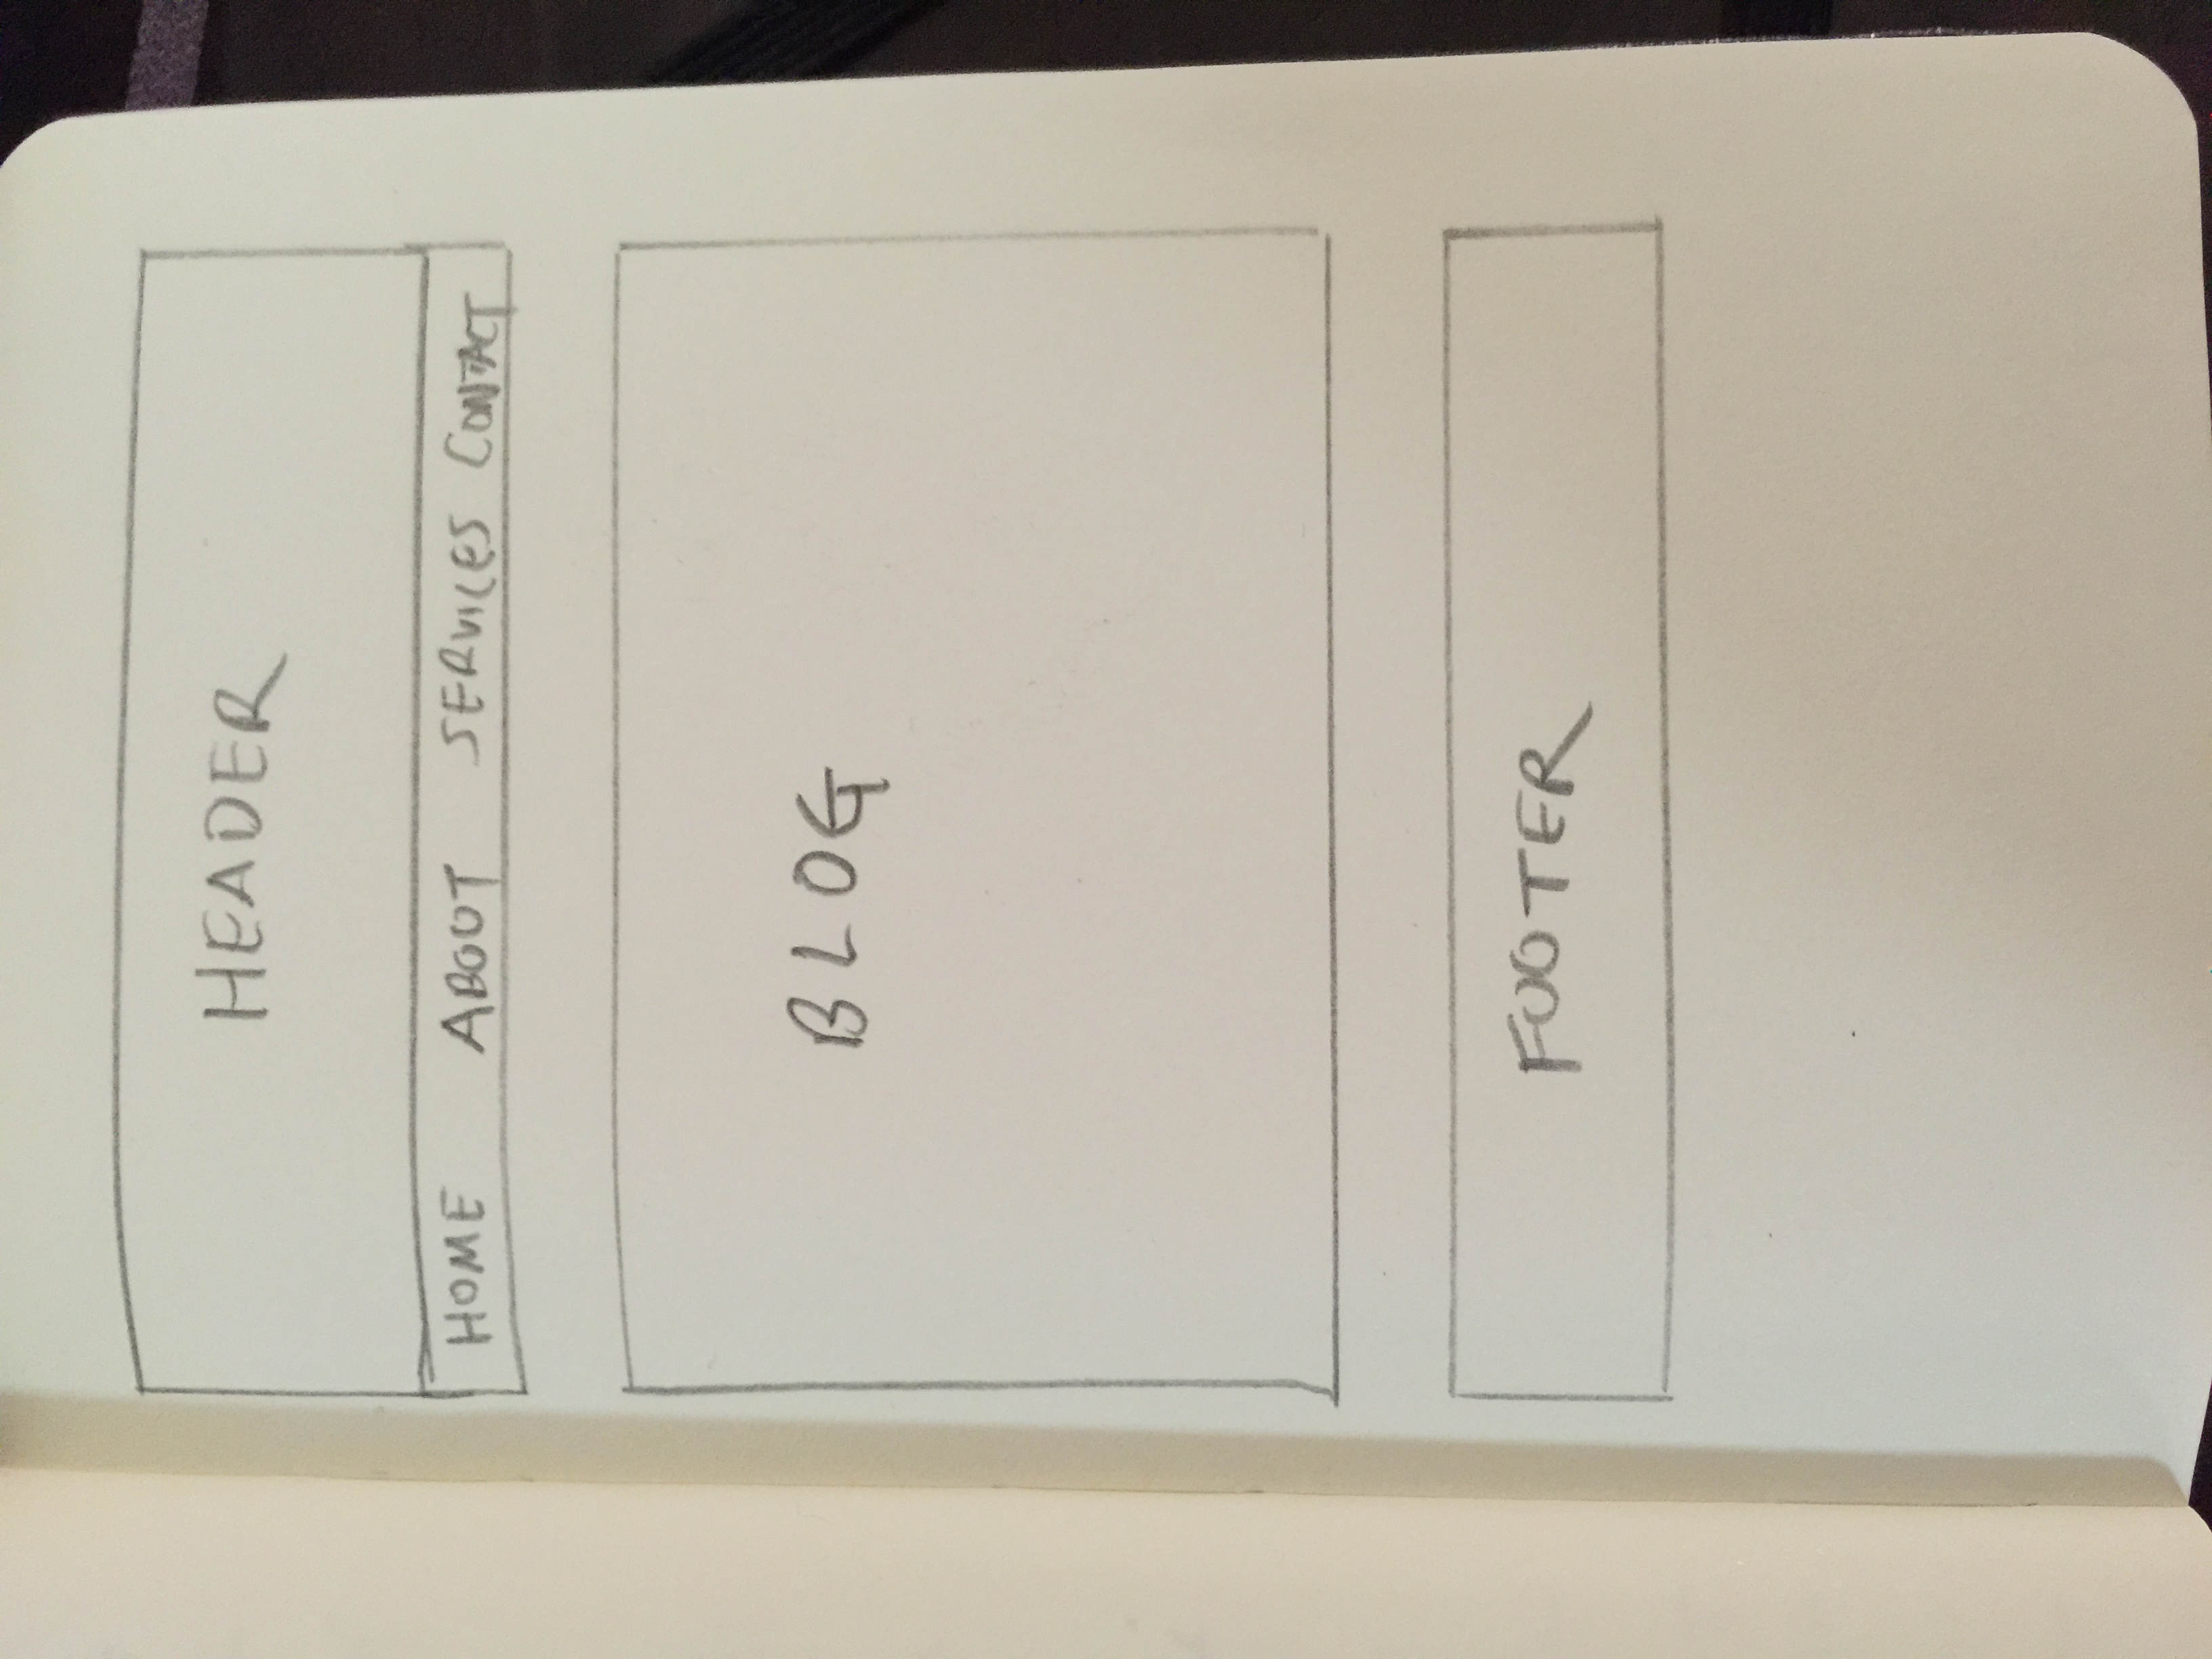 HEADER
HOME ABOUT SERVICES CONTACT
BLOG
FOOTER